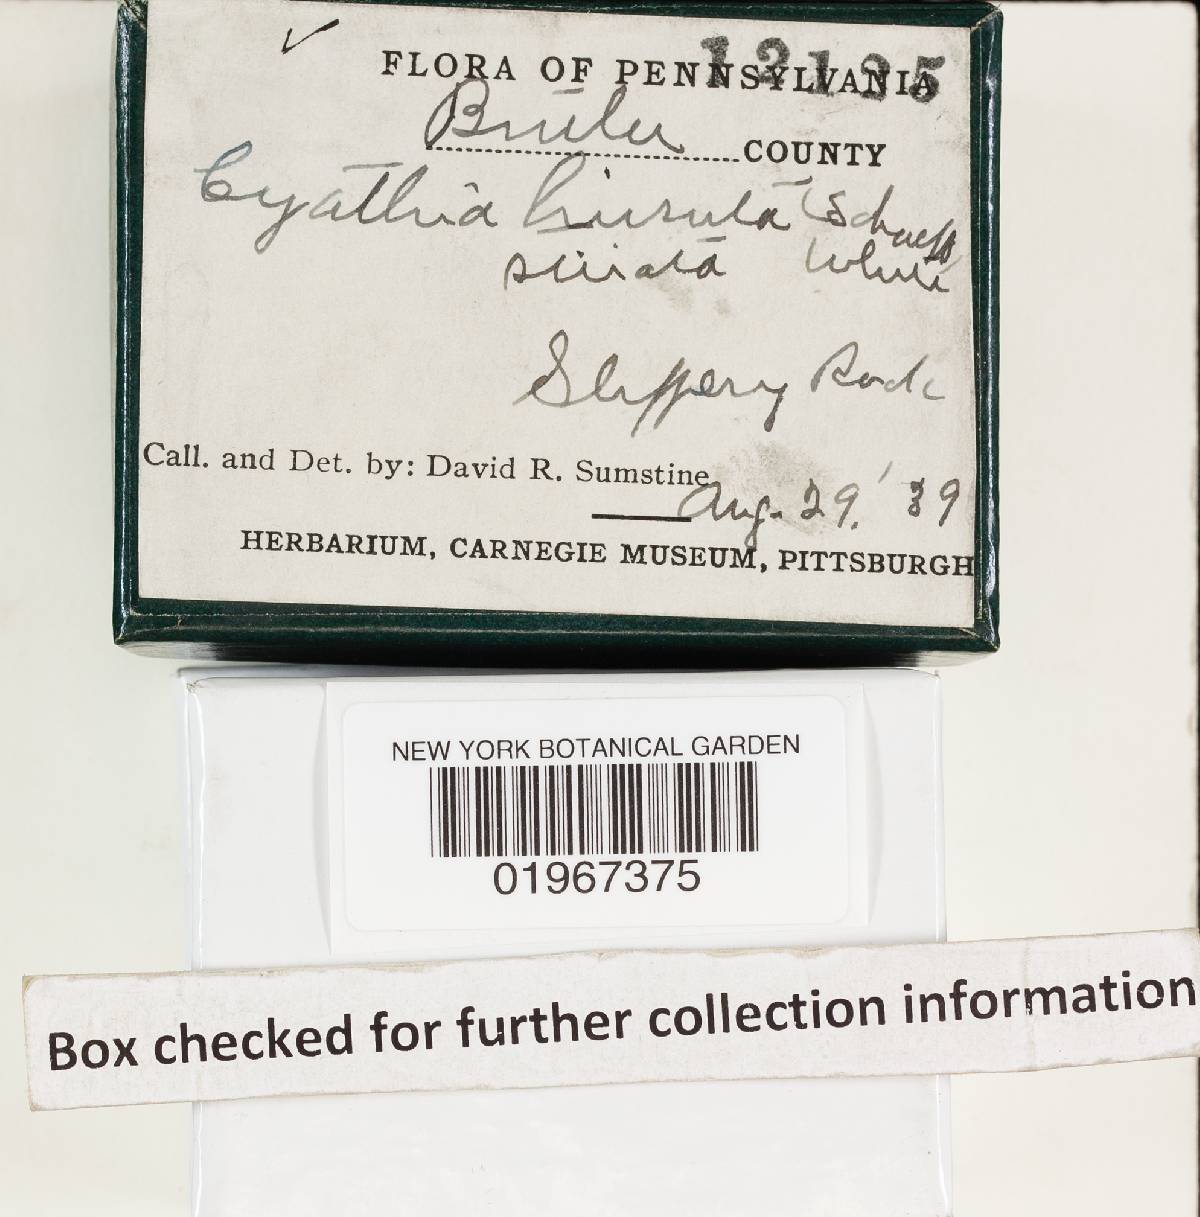 12125
FLORA OF PENNSYLVANIA
Butler COUNTY
Cyathia hirsuta (Schaeff)
striata White
Slippery Rock
Call. and Det. by: David R. Sumstine
Aug. 29, '39
HERBARIUM, CARNEGIE MUSEUM, PITTSBURGH
NEW YORK BOTANICAL GARDEN
01967375
Box checked for further collection information